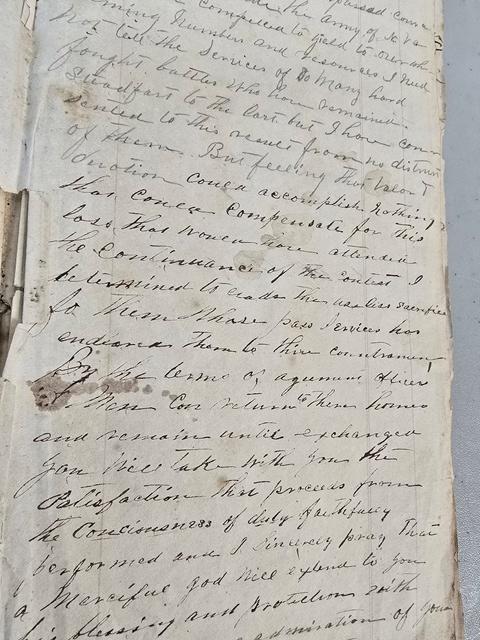 the Army of N. Va
compelled to yield to over whe
ming numbers and resources I need
not tell the Services of So Many hard
fought battles who have remained
Steadfast to the last but I have con
sented to this result from no distrus
of them. But feeling that Valor &
Devotion could accomplish nothing
that could Compensate for this
loss that would have attended
the Continuance of the Contest I
determined to evade the useless Sacrifice
fo them Whose pass Services has
endeared them to thire countramen
By the terms of agument officer
& Men Can return to There homes
and remain until exchanged
you Will take With you the
Satisfaction that proceeds from
the Conciousness of duty faithfully
performed and I Sincerely pray That
a Merciful god Will extend to you
his blessing and protection with
admiration of your